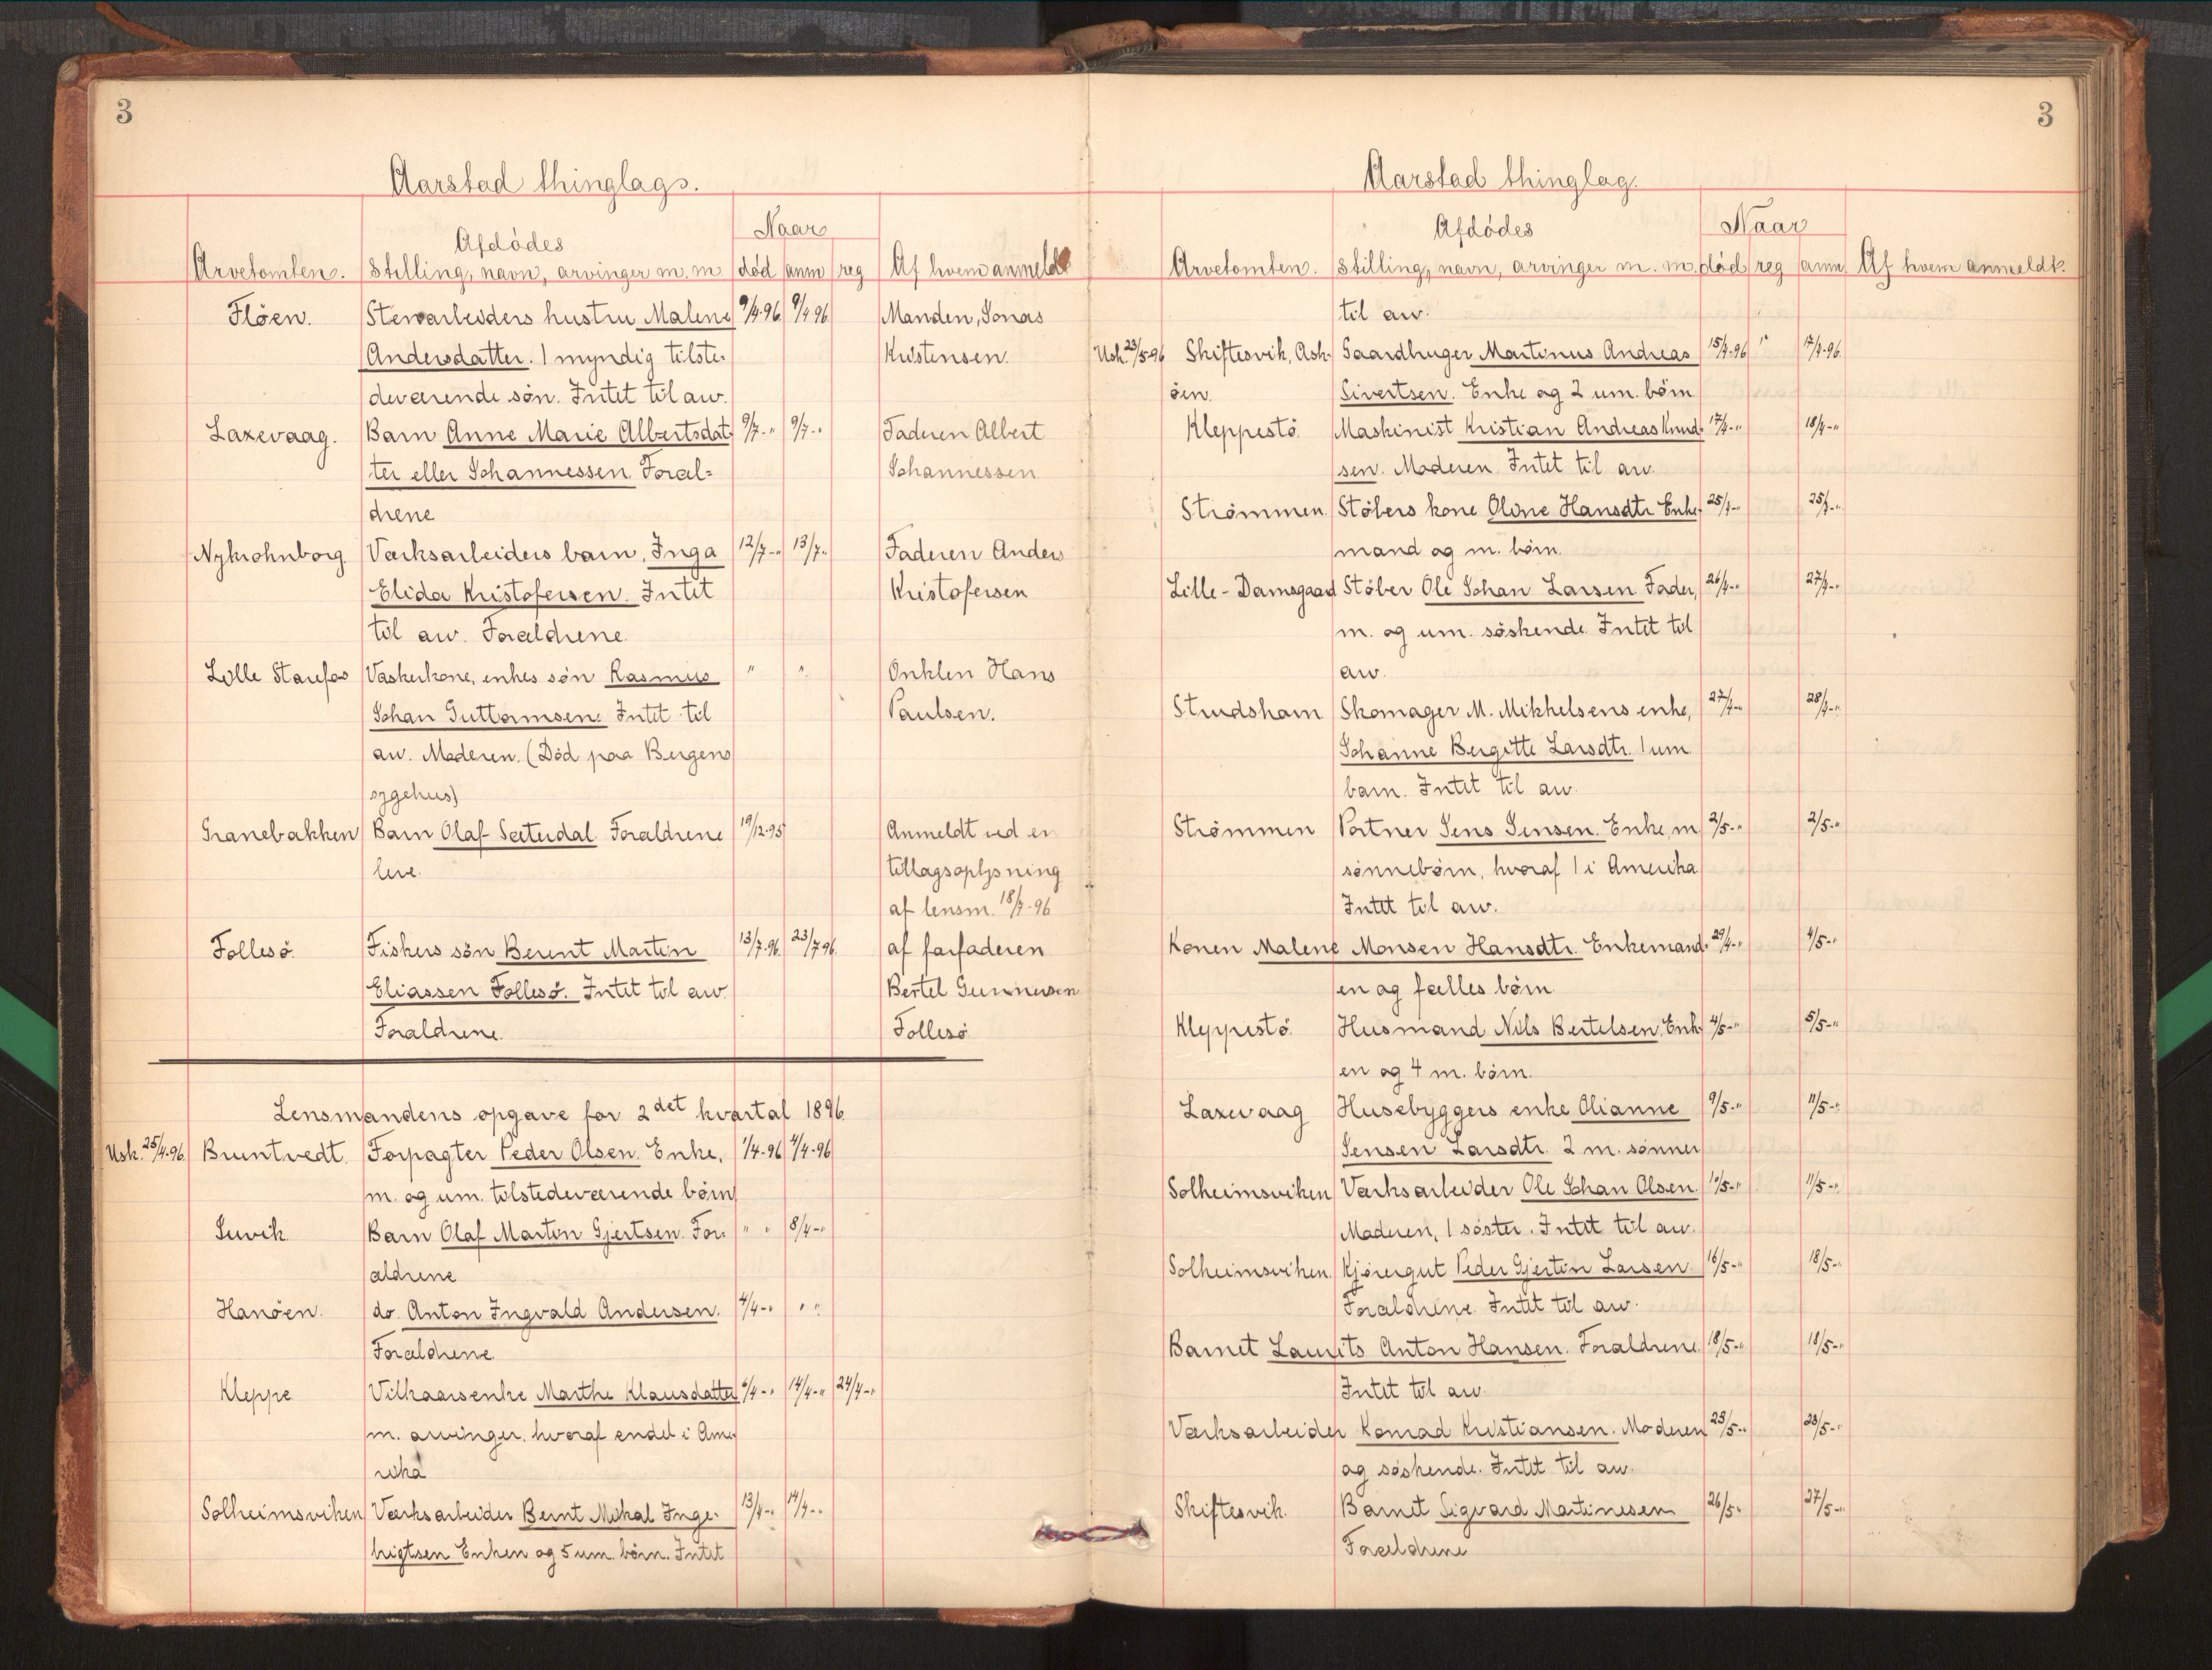 3
Aarstad thinglags.
Naar
Afdødes
Arvetomten. Stilling, navn, arvinger m. m død anm reg Af hvem anmeldt
Flöen. Stenarbeiders hustru Malene 9/4.96. 9/4 96 Manden, Jonas
Andersdatter. 1 myndig tilste- Kristensen.
deværende søn. Intet til arv.
Laxevaag. Barn Anne Marie Albertsdat- 9/7-" 9/7-" Faderen Albert
ter eller Johannessen. Foræl= Johannessen
drene
Nykrohnborg Værksarbeiders barn, Inga 12/7-" 13/7-" Faderen Anders
Elida Kristofersen. Intet Kristofersen
til arv. Forældrene
Lille Vaskerkone, enkes søn Rasmus " " Onklen Hans
Johan Guttormsen. Intet til Paulsen.
arv. Moderen. (Død paa Bergens
sygehus)
Granebakken Barn Olaf Sæterdal. Forældrene 19/12-95 Anmeldt ved en
leve. tillægsoplysning
af lensm. 18/7-96
Follesø. Fiskers søn Berent Martin 13/7.96. 23/7 96. af farfaderen
Eliassen Follesø. Intet til arv. Bertel Gunnersen
Forældrene. Follesø
Lensmandens opgave for 2det kvartal 1896.
Usk. 25/4.96. Bruntvedt. Forpagter Peder Olsen. Enke, 1/4-96 4/4-96
m. og um. tilstedeværende børn
Juvik Barn Olaf Martin Gjertsen. For- " " 8/4-"
ældrene
Hanöen. do. Anton Ingvald Andersen. 4/4-" " "
Forældrene
Kleppe Vilkaarsenke Marthe Klausdatter 6/4-" 14/4-" 24/4-"
m. arvinger, hvoraf endel i Ame-
rika
Solheimsviken Værksarbeider Bernt Mikal Inge- 13/4-" 14/4-"
brigtsen Enken og 5 um. børn. Intet
3
Aarstad thinglag.
Naar
Afdødes
Arvetomten. Stilling, navn, arvinger m. m. død reg anm. Af hvem anmeldt.
til arv.
Usk. 23/5-96 Skiftesvik, Ask- Gaardbruger Martinus Andreas 15/4-96 " 17/4-96.
øen. Sivertsen. Enke og 2 um. børn
Kleppestø. Maskinist Kristian Andreas Knud- 17/4-" 18/4-"
sen. Moderen. Intet til arv.
Strømmen. Støbers kone Oline Hansdtr. Enke- 25/4-" 25/4-"
mand og m. børn.
Lille-Damsgaard Støber Ole Johan Larsen. Fader, 26/4-" 27/4-"
m. og um. søskende. Intet til
arv.
Strudsham. Skomager M. Mikkelsens enke, 27/4-" 28/4-"
Johanne Bergitte Larsdtr. 1 um
barn. Intet til arv.
Strømmen Portner Jens Jensen. Enke, m 2/5-" 2/5-"
sønnebørn, hvoraf 1 i Amerika
Intet til arv.
Konen Malene Monsen Hansdtr. Enkemand- 29/4-" 4/5-"
en og fælles børn.
Kleppestø. Husmand Nils Bertelsen. Enk- 4/5-" 5/5-"
en og 4 m. børn.
Laxevaag Husebyggers enke Olianne 9/5-" 11/5-"
Jensen Larsdtr. 2 m. sønner
Solheimsviken Værksarbeider Ole Johan Olsen. 10/5-" 11/5-"
Moderen, 1 søster. Intet til arv.
Solheimsviken. Kjøregut Peder Gjertin Larsen. 16/5-" 18/5-"
Forældrene. Intet til arv.
Barnet Laurits Anton Hansen. Forældrene. 18/5-" 18/5-"
Intet til arv.
Værksarbeider Konrad Kristiansen. Moderen 23/5-" 23/5-"
og søskende. Intet til arv.
Skiftesvik. Barnet Sigvard Martinesen 26/5-" 27/5-"
Forældrene